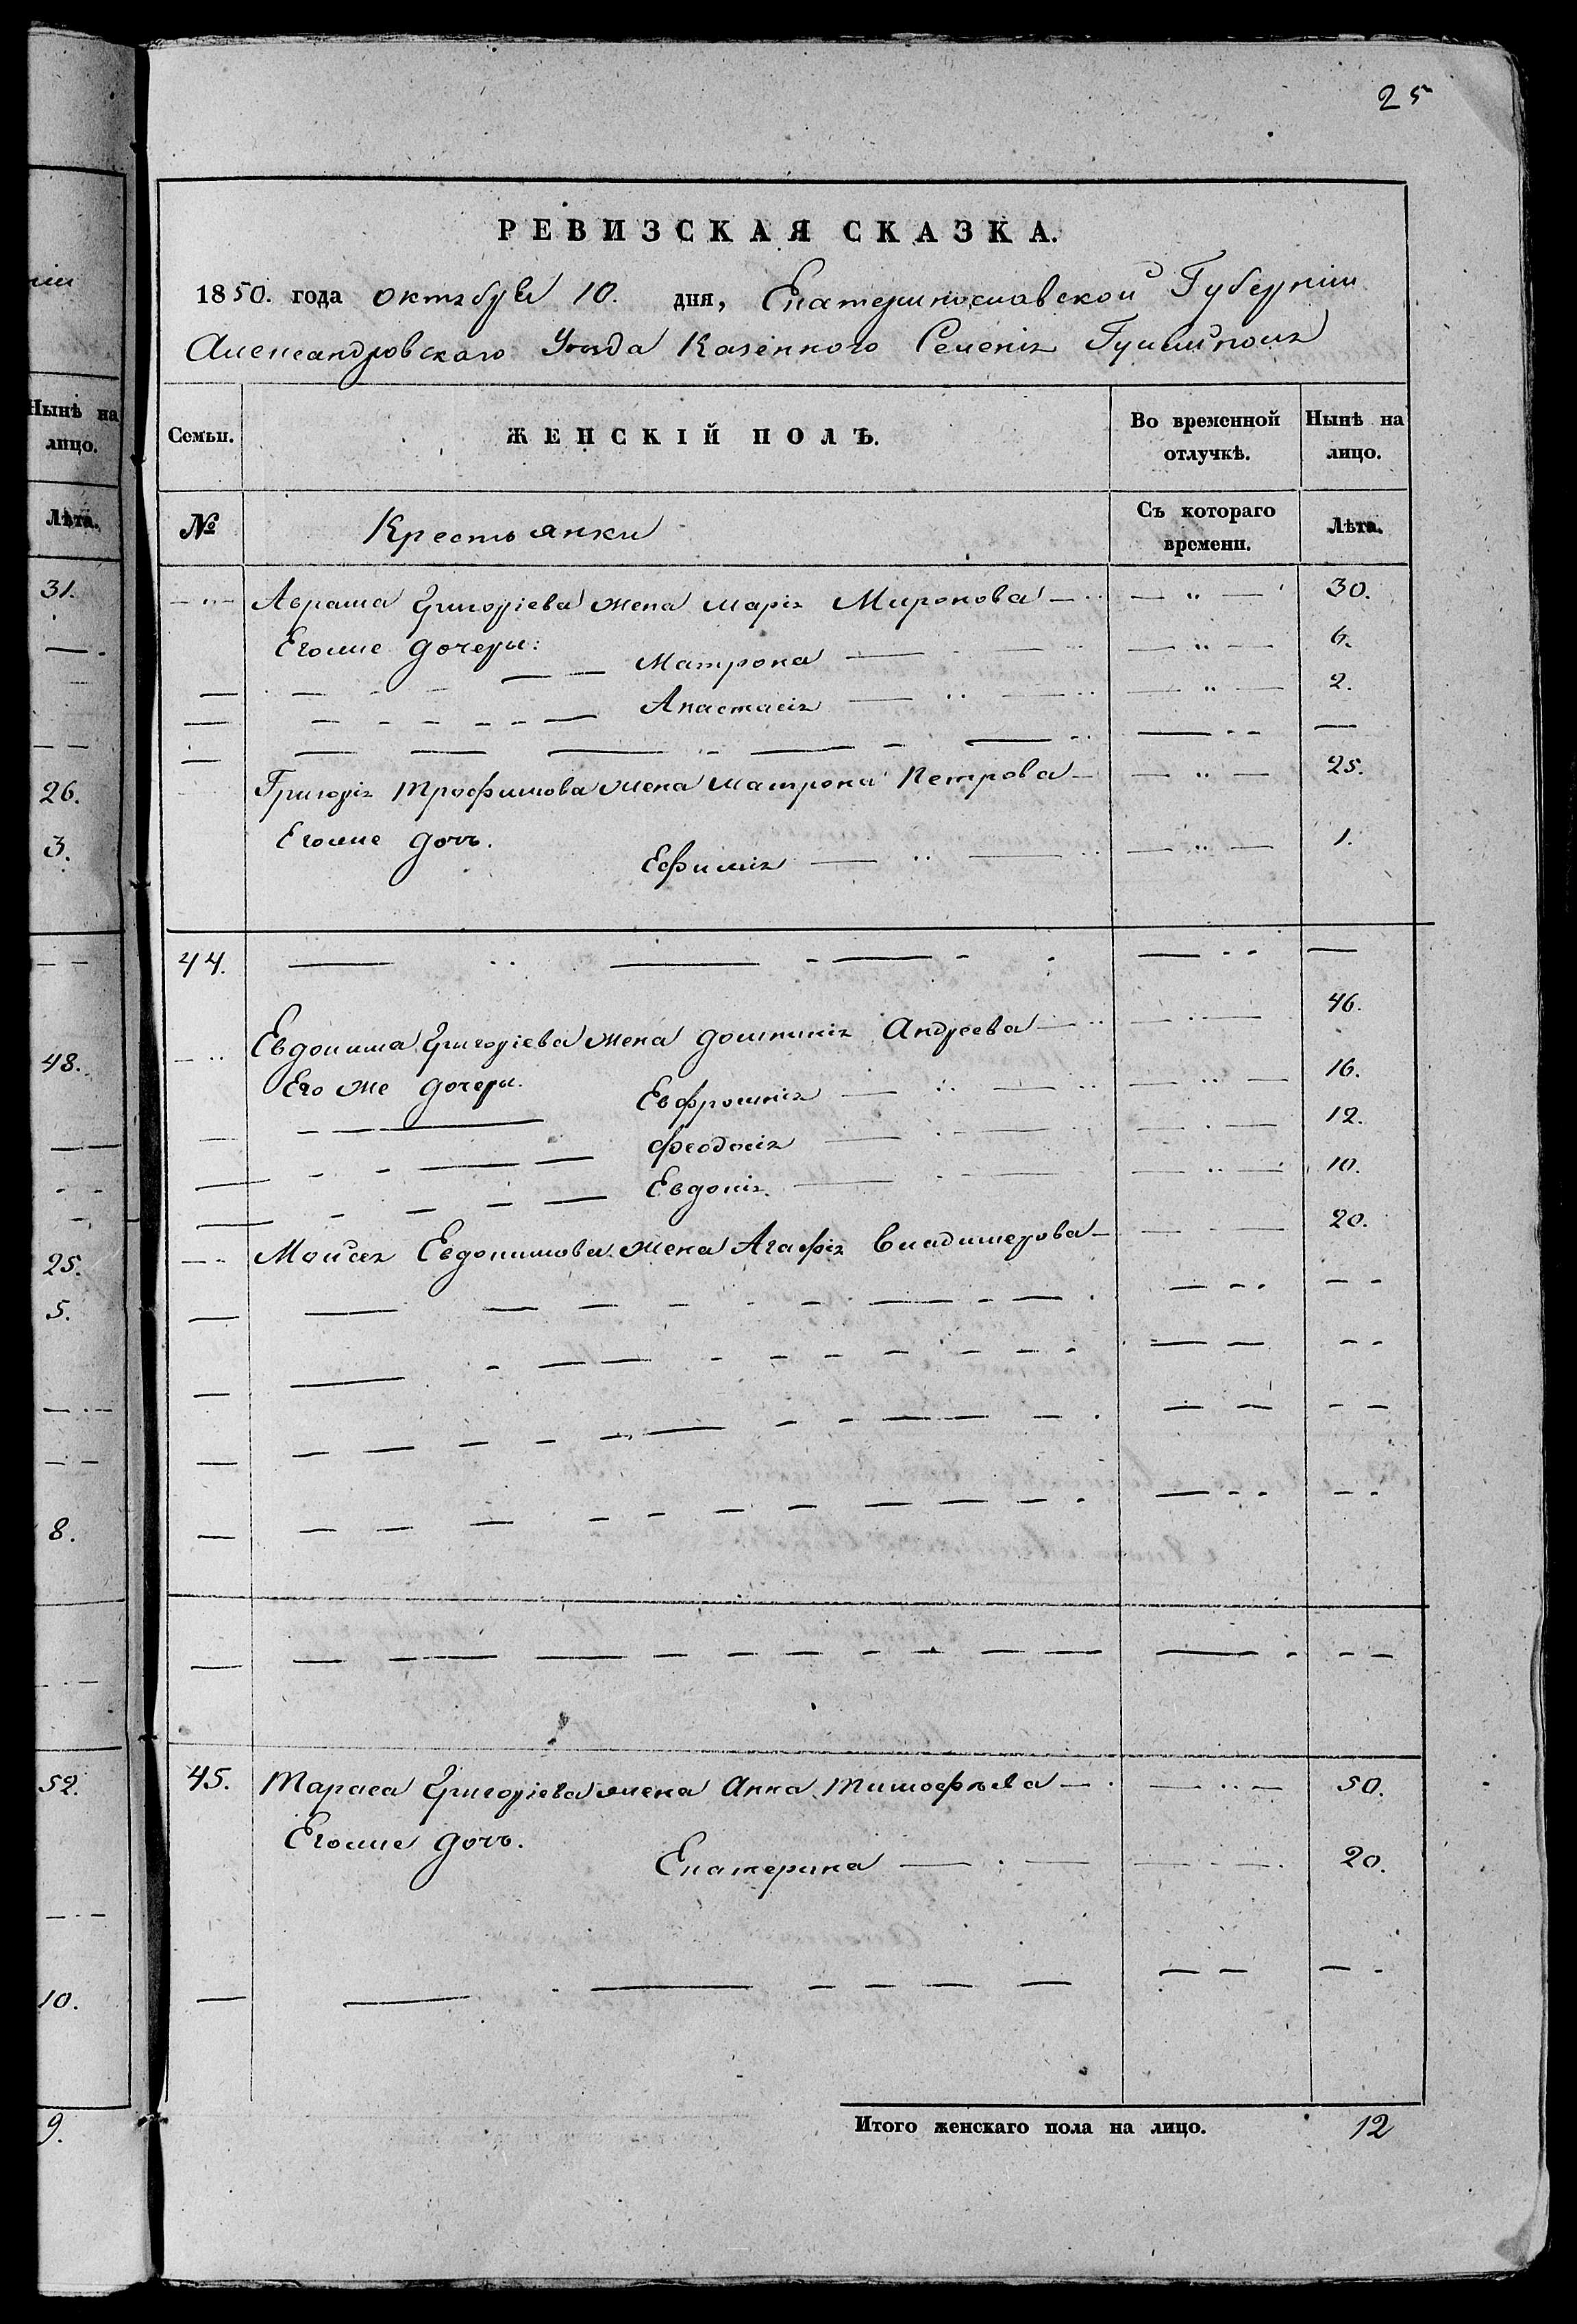 25
іи
Нынѣ на
лицо.
Лѣта.
31.
26.
3.
48.
25.
5.
8.
52.
10.
9.
РЕВИЗСКАЯ СКАЗКА.
1850. года октября 10. дня, Екатеринославской Губерніи
Александровскаго Уѣзда Казенного Селенія Гуляйполя
Семьи. ЖЕНСКІЙ ПОЛЪ. Во временной отлучкѣ. Нынѣ на лицо.
№ Крестьянки Съ котораго времени. Лѣта.
Абрама Григоріева жена Марія Миронова 30.
Его же дочери: Матрона 6.
Анастасія 2.
Григорія Трофимова жена Матрона Петрова 25.
Его же дочь. Ефимія 1.
44.
Евдокима Григоріева жена Домникія Андреева 46.
Его же дочери. Евфросинія 16.
Феодосія 12.
Евдокія. 10.
Мойсея Евдокимова жена Агафія Владимерова 20.
45. Тараса Григоріева жена Анна Тимофѣева 50.
Его же дочь. Екатерина 20.
Итого женскаго пола на лицо. 12